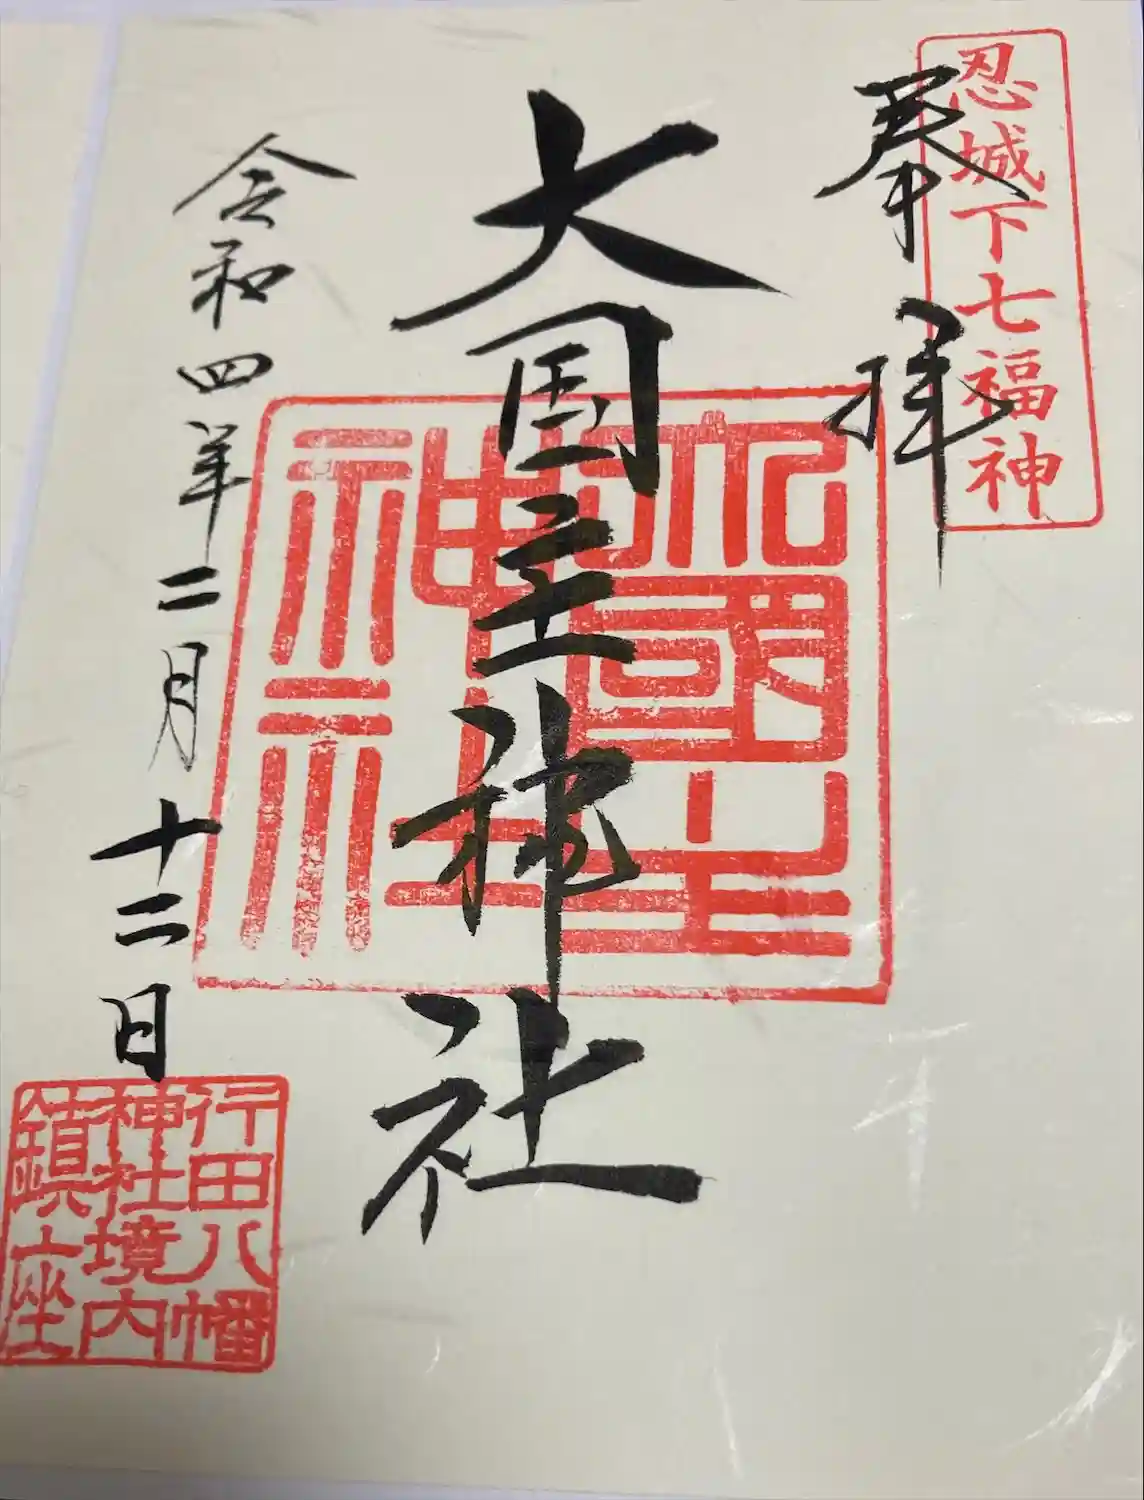 忍城下七福神
奉拝
大国主神社
大國主神社
令和四年二月十二日
行田八幡
神社境内
鎮座